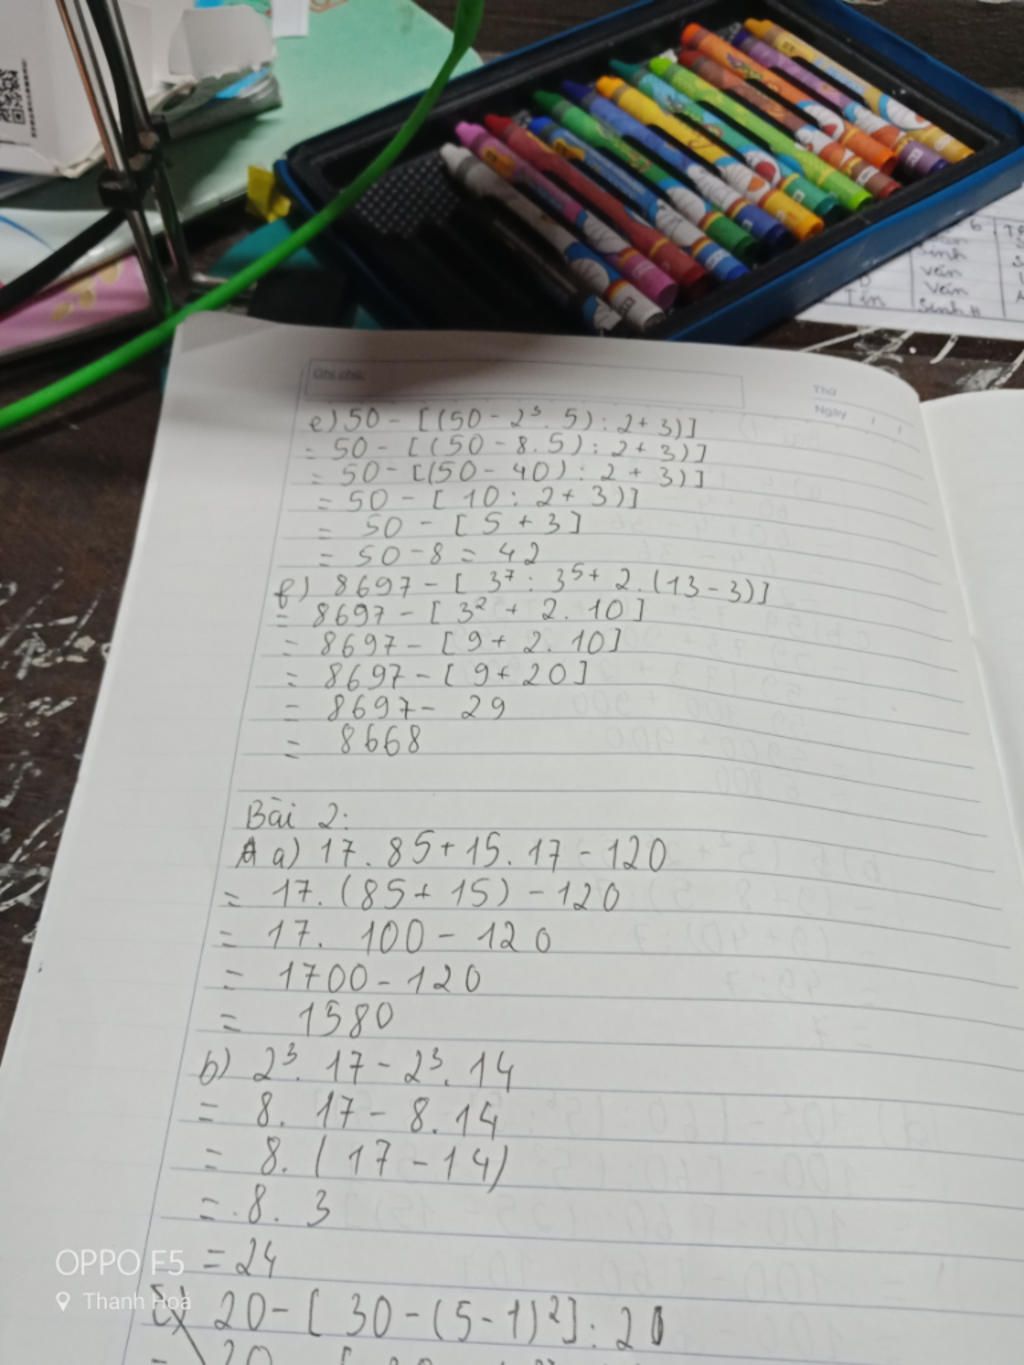 Sinh
Văn
Văn
Tin
Sinh H
Ghi chú:
Thứ
Ngày / /
e) 50 - [(50 - 2³. 5) : 2 + 3)]
= 50 - [(50 - 8.5) : 2 + 3)]
= 50 - [(50 - 40) : 2 + 3)]
= 50 - [ 10 : 2 + 3)]
= 50 - [ 5 + 3 ]
= 50 - 8 = 42
f) 8697 - [ 3⁷ : 3⁵ + 2. (13 - 3)]
= 8697 - [ 3² + 2. 10]
= 8697 - [ 9 + 2. 10]
= 8697 - [ 9 + 20]
= 8697 - 29
= 8668
Bài 2:
A a) 17. 85 + 15. 17 - 120
= 17. (85 + 15) - 120
= 17. 100 - 120
= 1700 - 120
= 1580
b) 2³. 17 - 2³. 14
= 8. 17 - 8. 14
= 8. (17 - 14)
= .8. 3
= 24
c) 20 - [ 30 - (5 - 1)²] : 20
OPPO F5
Thanh Hoá